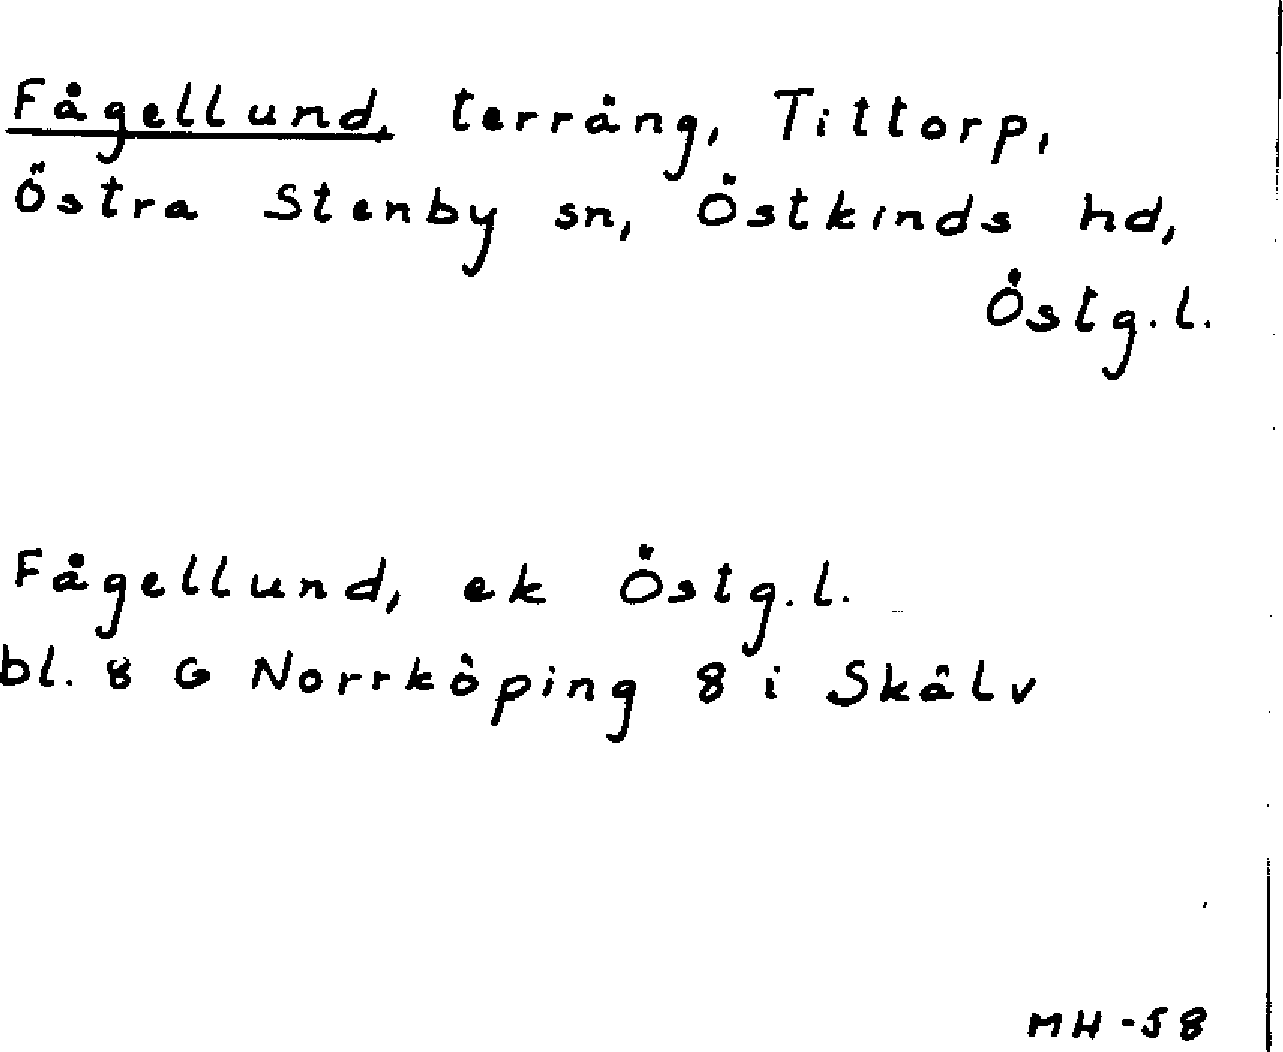 Fågellund, terräng, Tittorp,
Östra Stenby sn, Östkinds hd,
Östg.l.
Fågellund, ek Östg.l.
bl. 8 G Norrköping 8 i Skälv
MH-58